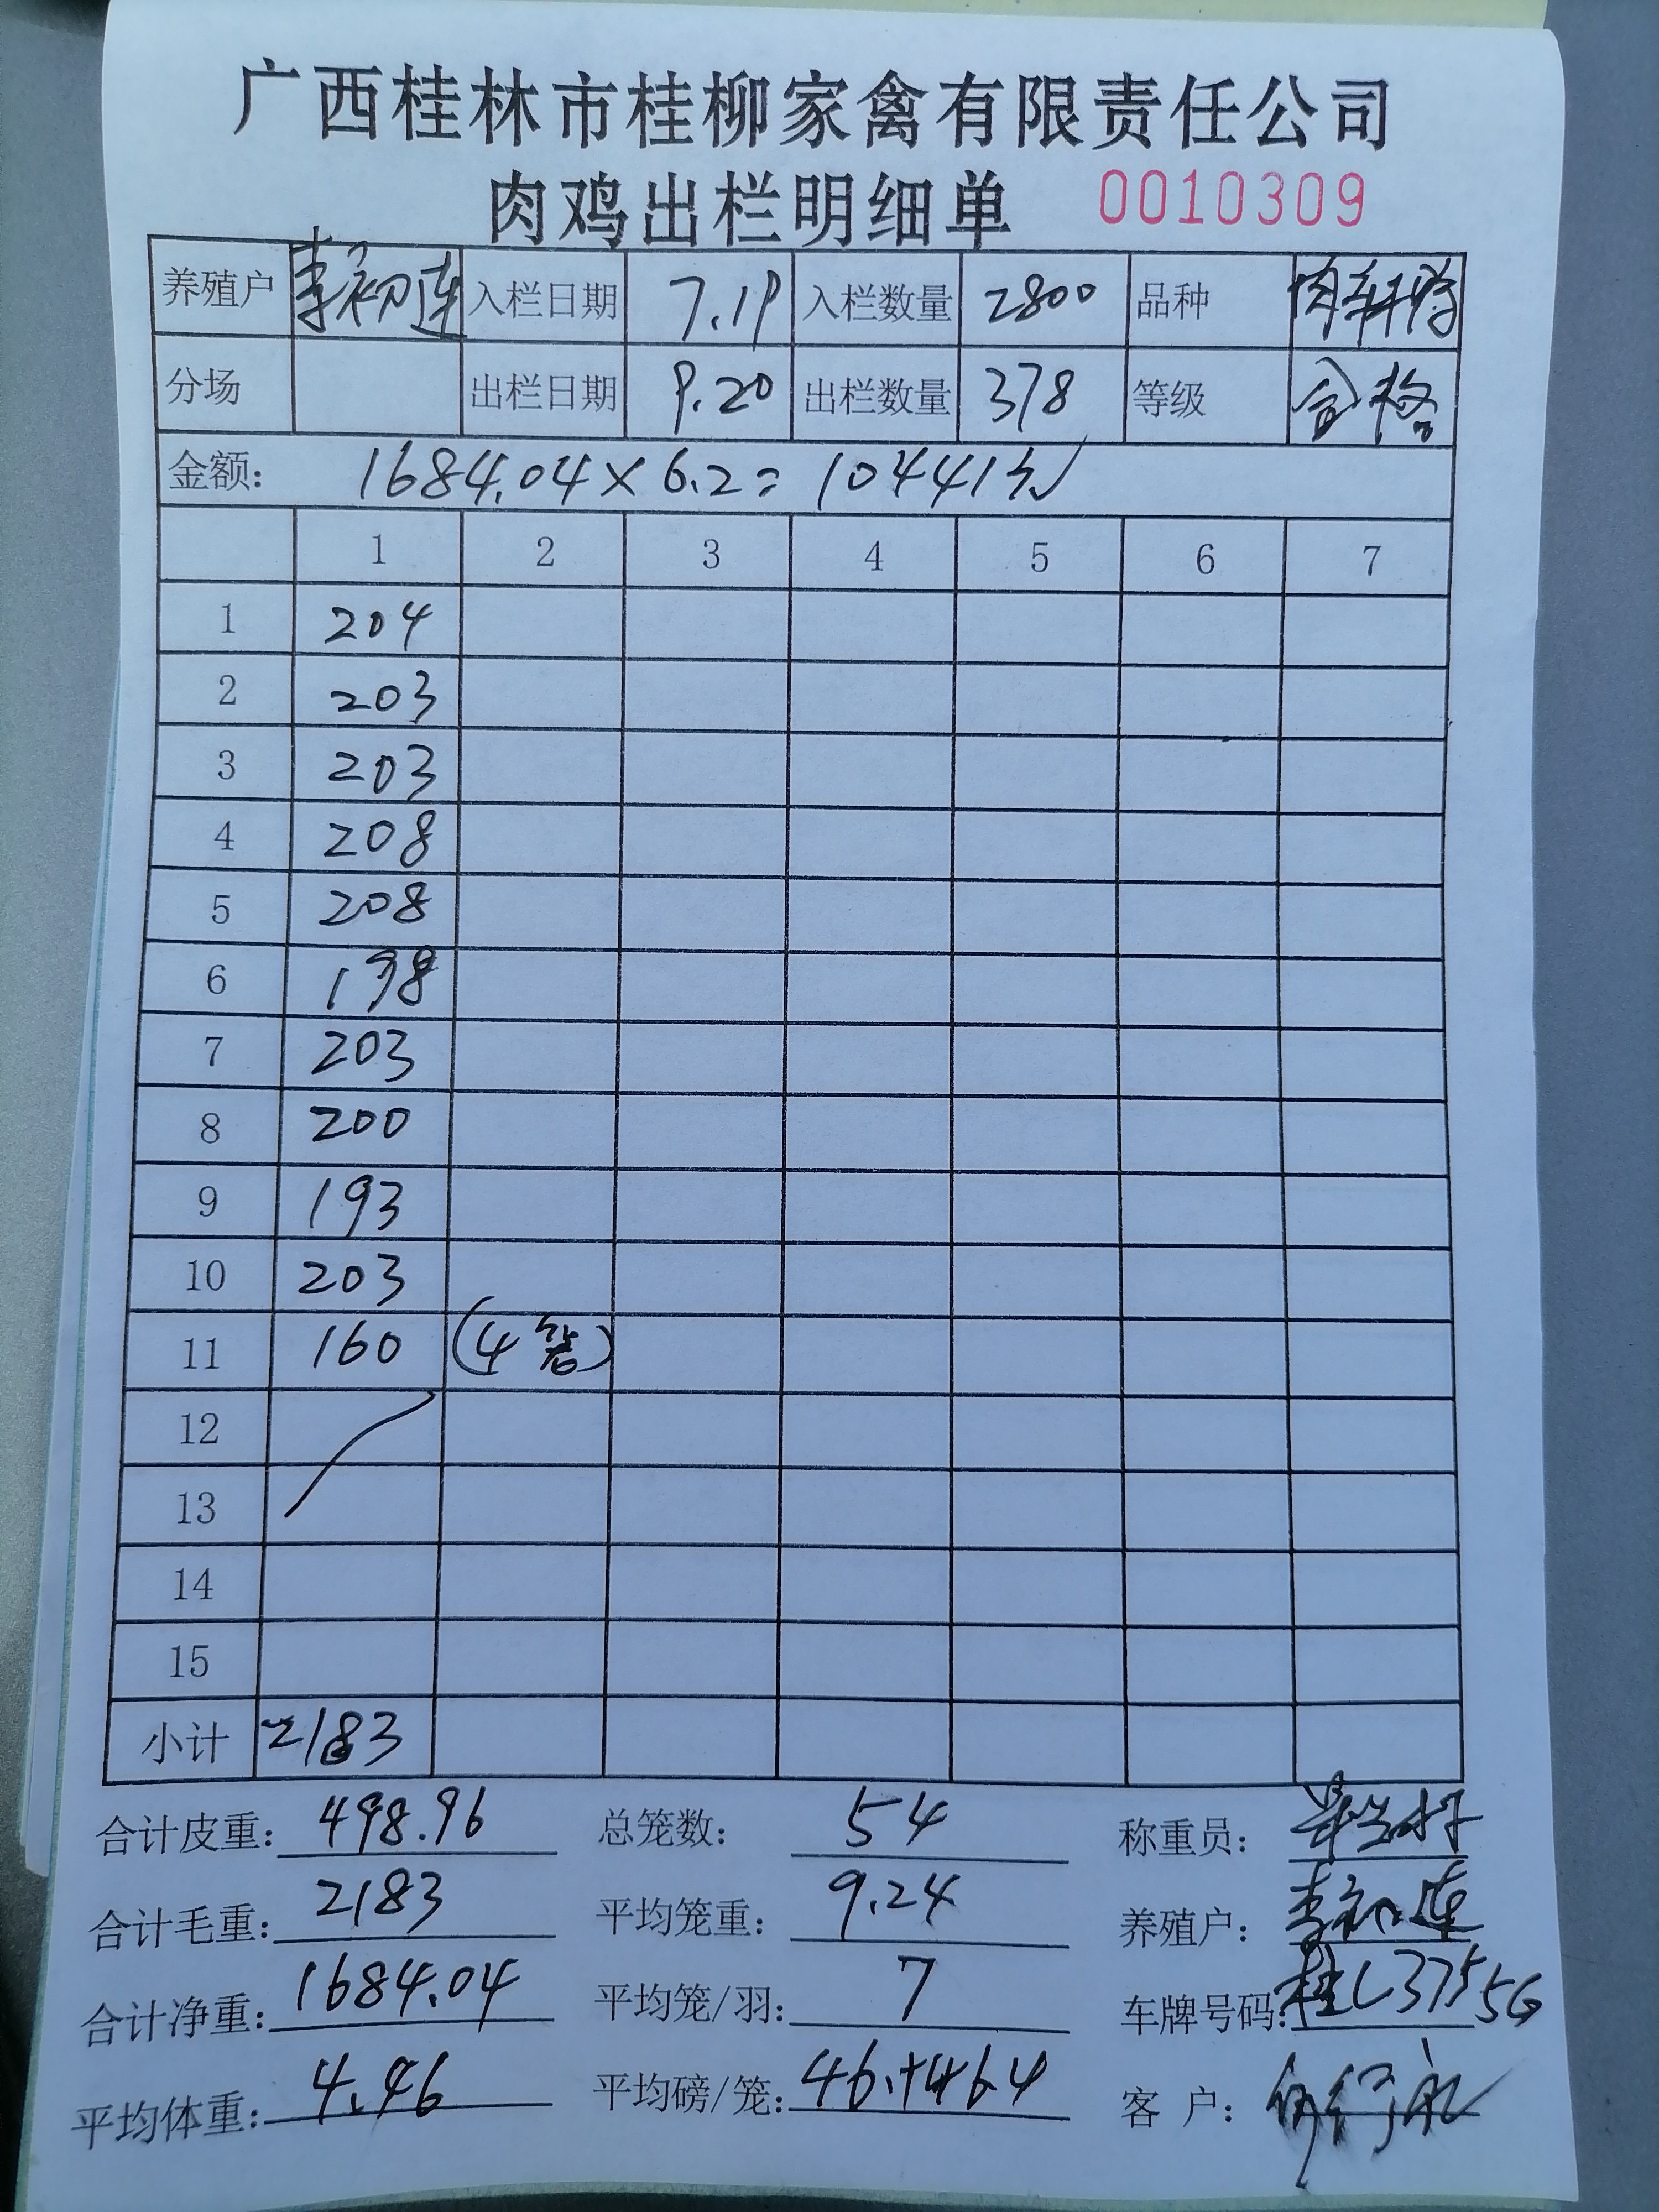 广西桂林市桂柳家禽有限责任公司
肉鸡出栏明细单 0010309
养殖户 李初连 入栏日期 7.19 入栏数量 2800 品种
分场 出栏日期 9.20 出栏数量 378 等级 合格
金额： 1684.04×6.2= 10441
1 2 3 4 5 6 7
1 204
2 203
3 203
4 208
5 208
6 198
7 203
8 200
9 193
10 203
11 160 (4笼)
12
13
14
15
小计 2183
合计皮重： 498.96 总笼数： 54 称重员：
合计毛重： 2183 平均笼重： 9.24 养殖户： 李初连
合计净重： 1684.04 平均笼/羽： 7 车牌号码： 桂C37556
平均体重： 4.46 平均磅/笼： 客 户：